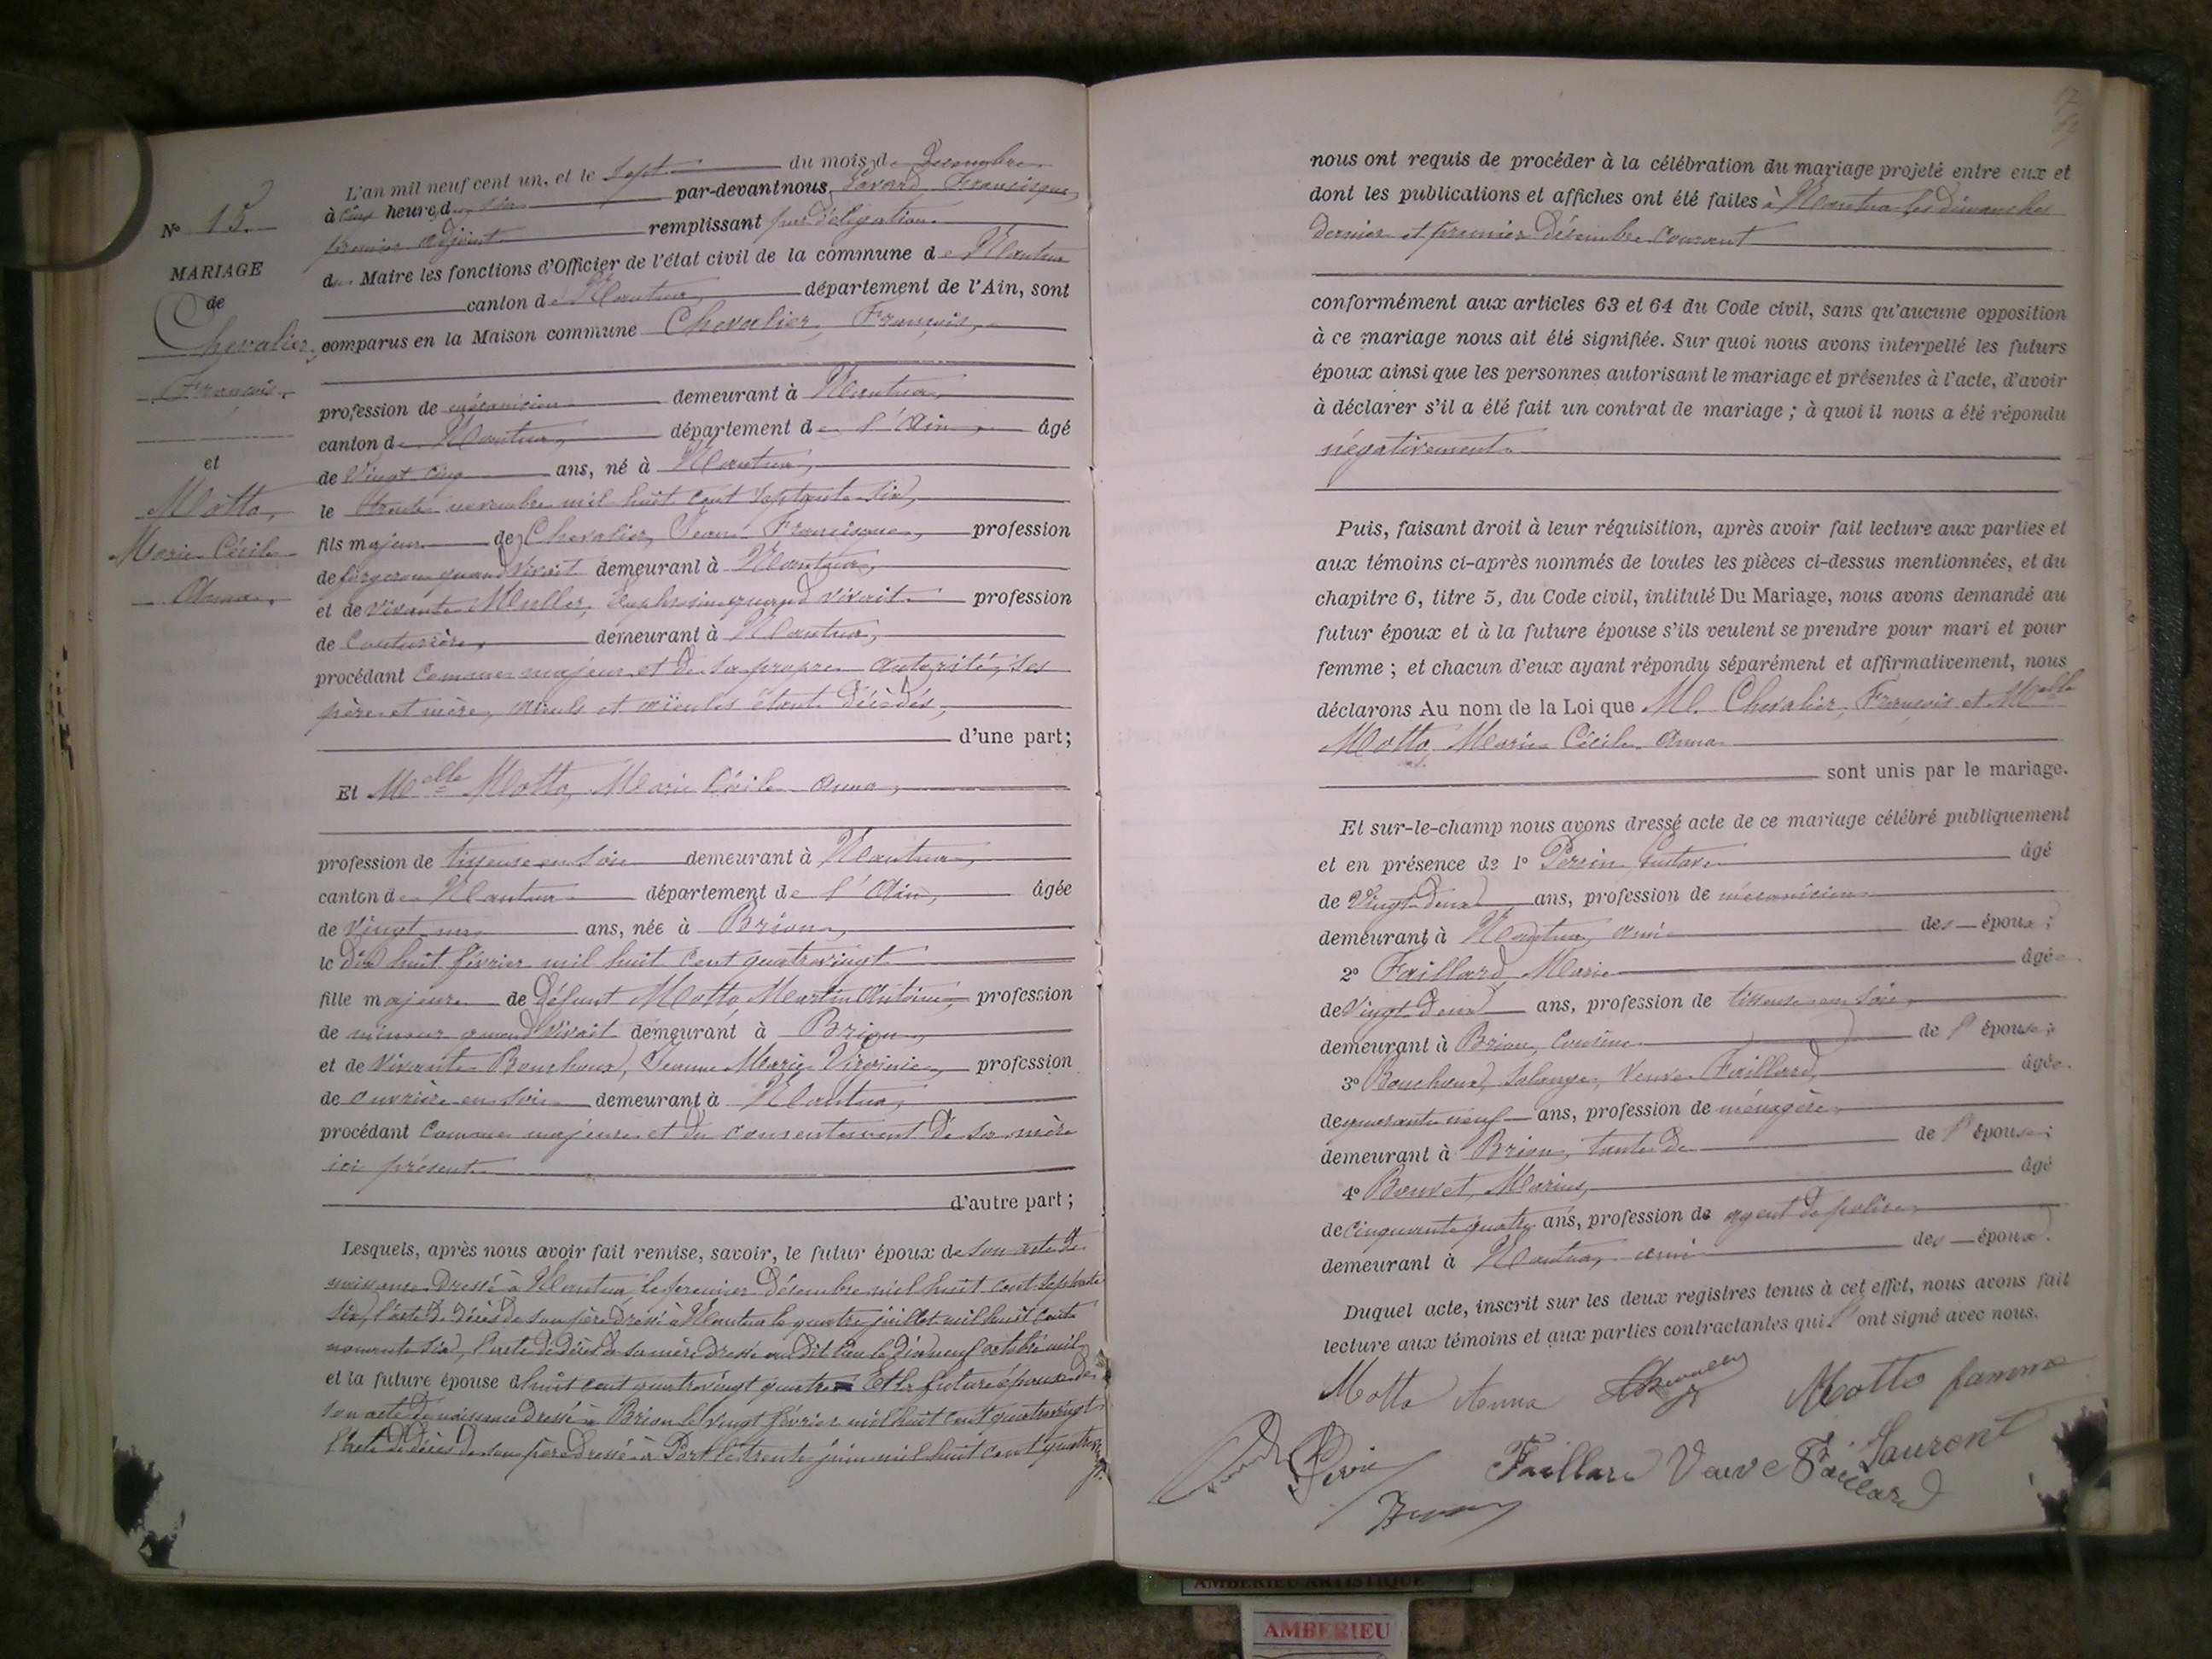 N° 15.
MARIAGE
de
Chevalier,
François,
et
Motto,
Marie Cécile
Anna,
L'an mil neuf cent un, et le sept du mois de Décembre
à cinq heures du soir par-devant nous, Savard Francisque,
premier adjoint remplissant par délégation
du Maire les fonctions d'Officier de l'état civil de la commune de Nantua
canton de Nantua, département de l'Ain, sont
comparus en la Maison commune Chevalier, François,
profession de mécanicien demeurant à Nantua,
canton de Nantua, département de l'Ain, âgé
de Vingt cinq ans, né à Nantua,
le trente novembre mil huit cent septante six,
fils majeur de Chevalier, Jean Francisque, profession
de forgeron quand vivait demeurant à Nantua,
et de vivante Muller, Euphrosine quand vivait profession
de Couturière, demeurant à Nantua,
procédant comme majeur et de sa propre autorité, ses
père et mère, aïeuls et aïeules étant décédés,
d'une part;
Et Melle Motto, Marie Cécile Anna,
profession de tisseuse en soie demeurant à Nantua,
canton de Nantua département de l'Ain, âgée
de Vingt un ans, née à Brion,
le dix huit février mil huit cent quatre vingt
fille majeure de défunt Motto, Martin Antoine, profession
de mineur quand vivait demeurant à Brion,
et de vivante Bouchoux, Jeanne Marie Virginie, profession
de ouvrière en soie demeurant à Nantua,
procédant comme majeure et du consentement de sa mère
ici présente
d'autre part;
Lesquels, après nous avoir fait remise, savoir, le futur époux de son acte de
naissance dressé à Nantua, le premier décembre mil huit cent septante
six, l'acte de décès de son père dressé à Nantua le quatre juillet mil huit cent
nonante six, l'acte de décès de sa mère dressé au dit lieu le dix neuf octobre mil
et la future épouse d huit cent quatre vingt quatre Et la future épouse de
son acte de naissance dressé à Brion le vingt février mil huit cent quatre vingt
l'acte de décès de son père dressé à Port le trente juin mil huit cent quatre
nous ont requis de procéder à la célébration du mariage projeté entre eux et
dont les publications et affiches ont été faites à Nantua les dimanches
dernier et premier décembre courant
conformément aux articles 63 et 64 du Code civil, sans qu'aucune opposition
à ce mariage nous ait été signifiée. Sur quoi nous avons interpellé les futurs
époux ainsi que les personnes autorisant le mariage et présentes à l'acte, d'avoir
à déclarer s'il a été fait un contrat de mariage ; à quoi il nous a été répondu
négativement
Puis, faisant droit à leur réquisition, après avoir fait lecture aux parties et
aux témoins ci-après nommés de toutes les pièces ci-dessus mentionnées, et du
chapitre 6, titre 5, du Code civil, intitulé Du Mariage, nous avons demandé au
futur époux et à la future épouse s'ils veulent se prendre pour mari et pour
femme ; et chacun d'eux ayant répondu séparément et affirmativement, nous
déclarons Au nom de la Loi que M. Chevalier, François et Melle
Motto, Marie Cécile Anna
sont unis par le mariage.
Et sur-le-champ nous avons dressé acte de ce mariage célébré publiquement
et en présence de 1° Perrin Gustave âgé
de Vingt deux ans, profession de mécanicien
demeurant à Nantua, ami des époux ;
2° Faillard, Marie âgée
de Vingt deux ans, profession de tisseuse en soie
demeurant à Brion, Cousine de l'épouse ;
3° Bouchoux, Solange, Veuve Faillard, âgée
de quarante neuf ans, profession de ménagère
demeurant à Brion, tante de de l'épouse ;
4° Bouvet, Marius, âgé
de cinquante quatre ans, profession de agent de police
demeurant à Nantua, ami des époux.
Duquel acte, inscrit sur les deux registres tenus à cet effet, nous avons fait
lecture aux témoins et aux parties contractantes qui l' ont signé avec nous.
Motto Anna Chevalier Motto famme
Perrin Faillard Veuve Faillard Laurent
AMBERIEU ARTISTIQUE
AMBERIEU